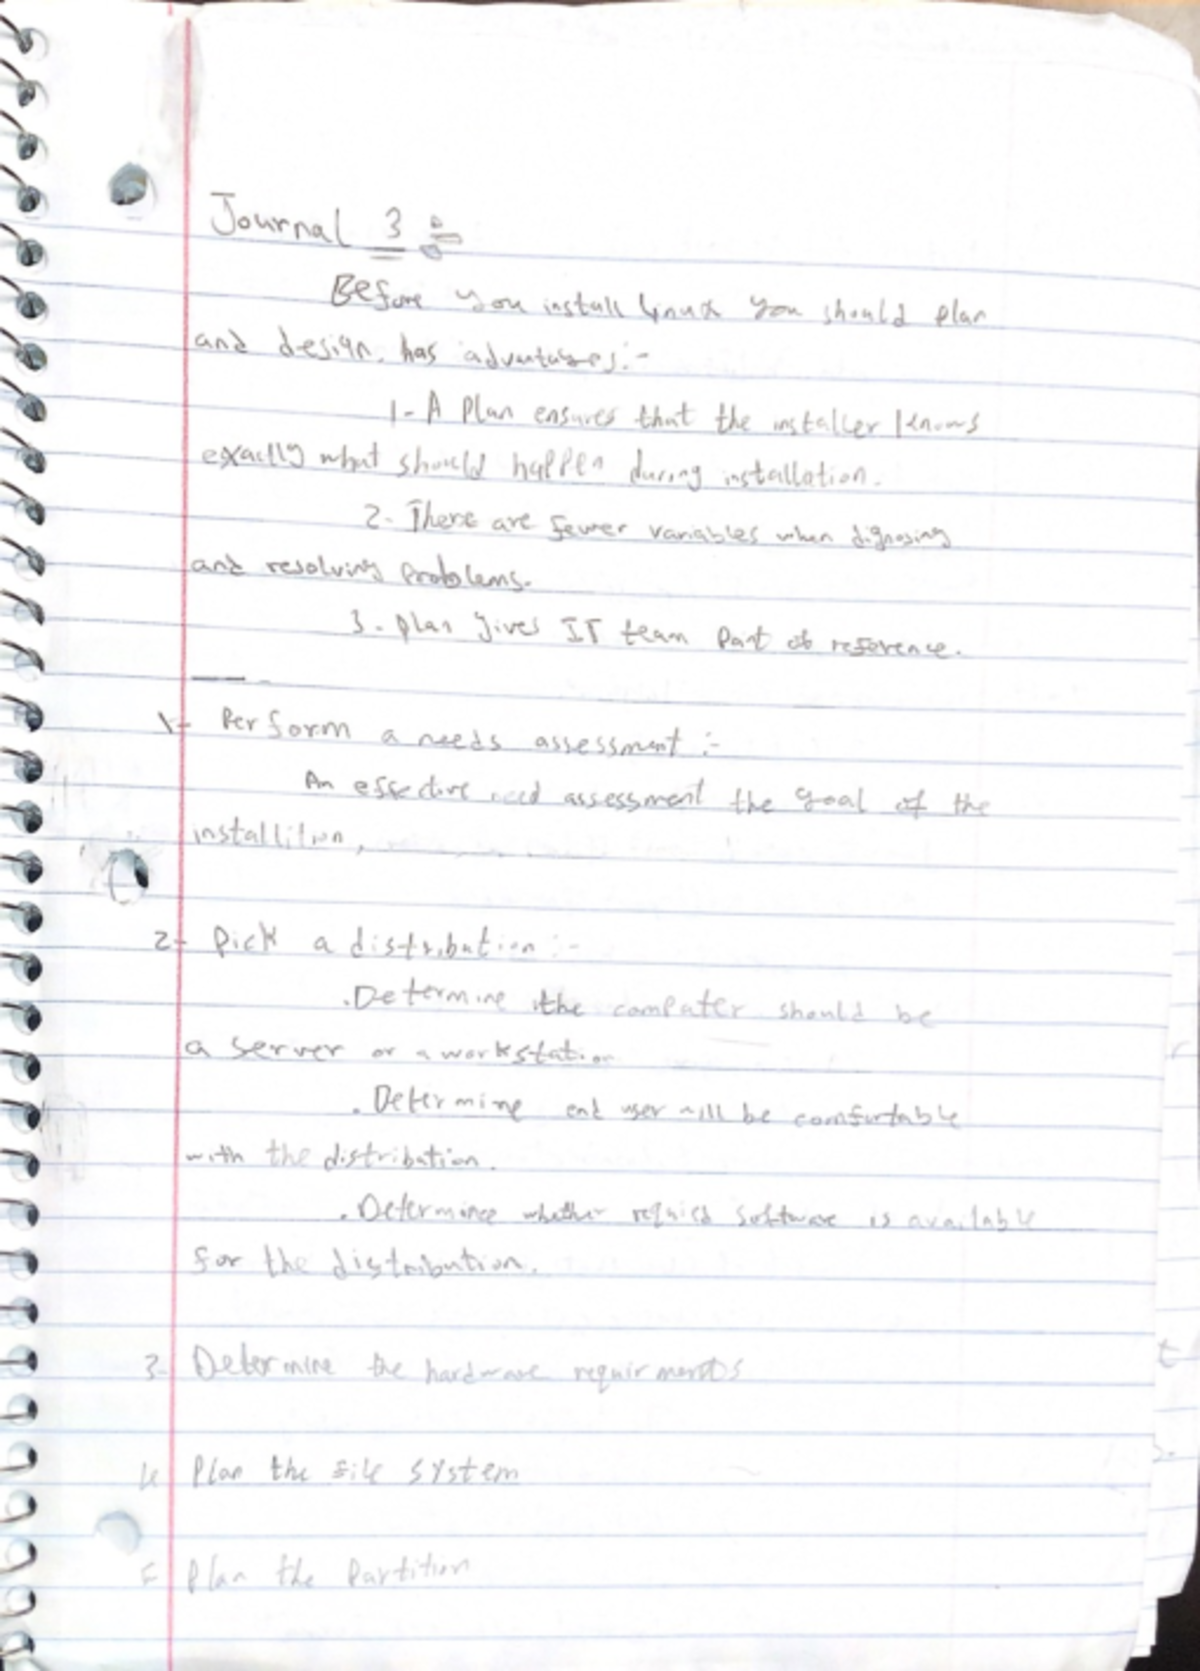 Journal 3 :-
Before you install linux you should plan
and design. has advantages:-
1- A Plan ensures that the installer knows
exactly what should happen during installation.
2- There are fewer variables when dignosing
and resolving Problems.
3- plan gives IT team Part of reference.
1- Perform a needs assessment :-
An effective need assessment the goal of the
installition,
2- Pick a distribution :-
.Determine the computer should be
a server or a workstation
. Determine end user will be comfurtable
with the distribution.
. Determinee whether software is available
for the distribution.
3- Determine the hardware requirments
4 Plan the file system
5 Plan the Partition